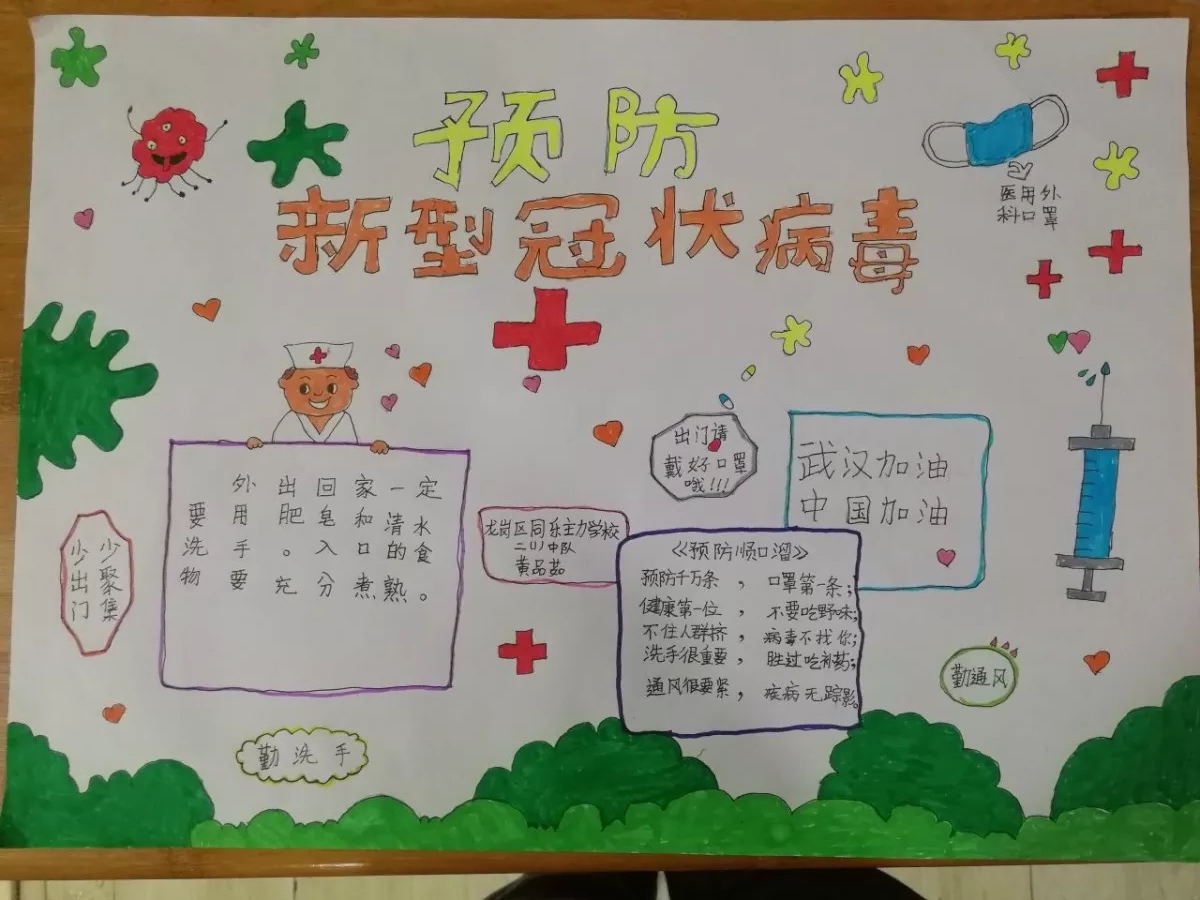 预防
新型冠状病毒
医用外
科口罩
出门请
戴好口罩
哦!!!
武汉加油
中国加油
外出回家一定
要用肥皂和清水
洗手。入口的食
物要充分煮熟。
少聚集
少出门
龙岗区同乐主力学校
二(1)中队
黄品茹
《预防顺口溜》
预防千万条，口罩第一条；
健康第一位，不要吃野味；
不住人群挤，病毒不找你；
洗手很重要，胜过吃补药；
通风很要紧，疾病无踪影。
勤通风
勤洗手